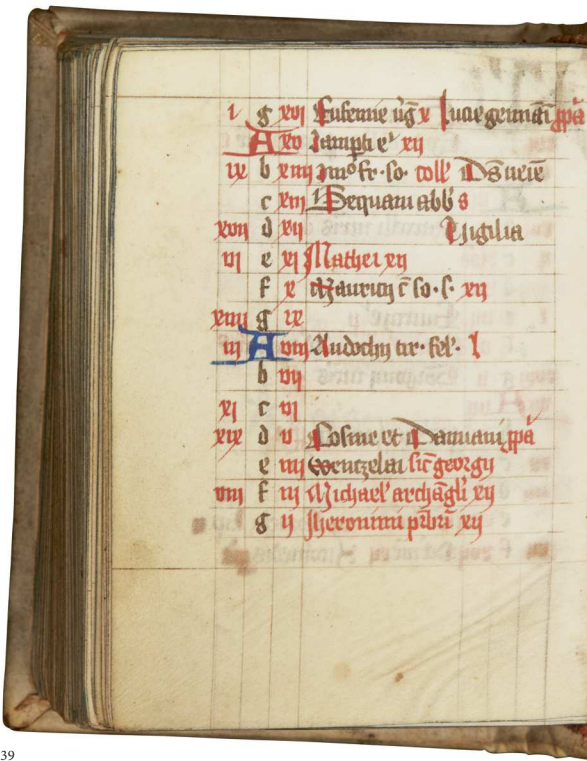 i g xvj Eufemie v̄g v Lucie geminiāi ɔpā
A xv Lamp̄ti eꝰ xij
ix b xiiij
c xiij Sequani abb s
xvij d xij Vigilia
vi e xj Mathei xij
f x Mauricij c̄ so· s· xij
xiiij g ix
iij A viij Andochij tir· fel'· l
b vij
xj c vi
xix d v Cosme et Damiani ɔpā
e iiij Wentzelai sic̄ georgij
viij f iij Michael' archāgli xij
g ij Iheronimi p̄sbri xij
39